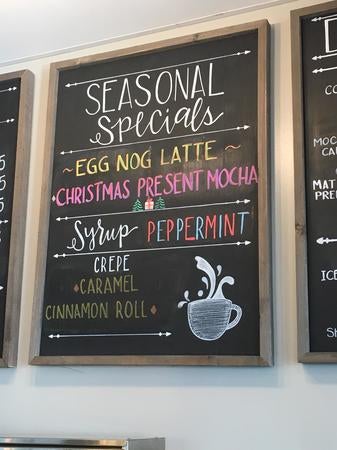 SEASONAL
Specials
~ EGG NOG LATTE ~
CHRISTMAS PRESENT MOCHA
Syrup PEPPERMINT
CREPE
CARAMEL
CINNAMON ROLL
5
5
5
CO
MOC
CA
MAT
PRE
ICE
SH